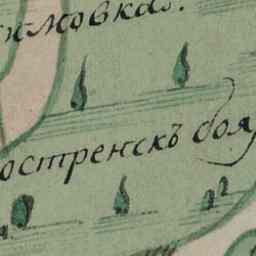 имовка.
остренскъ боя